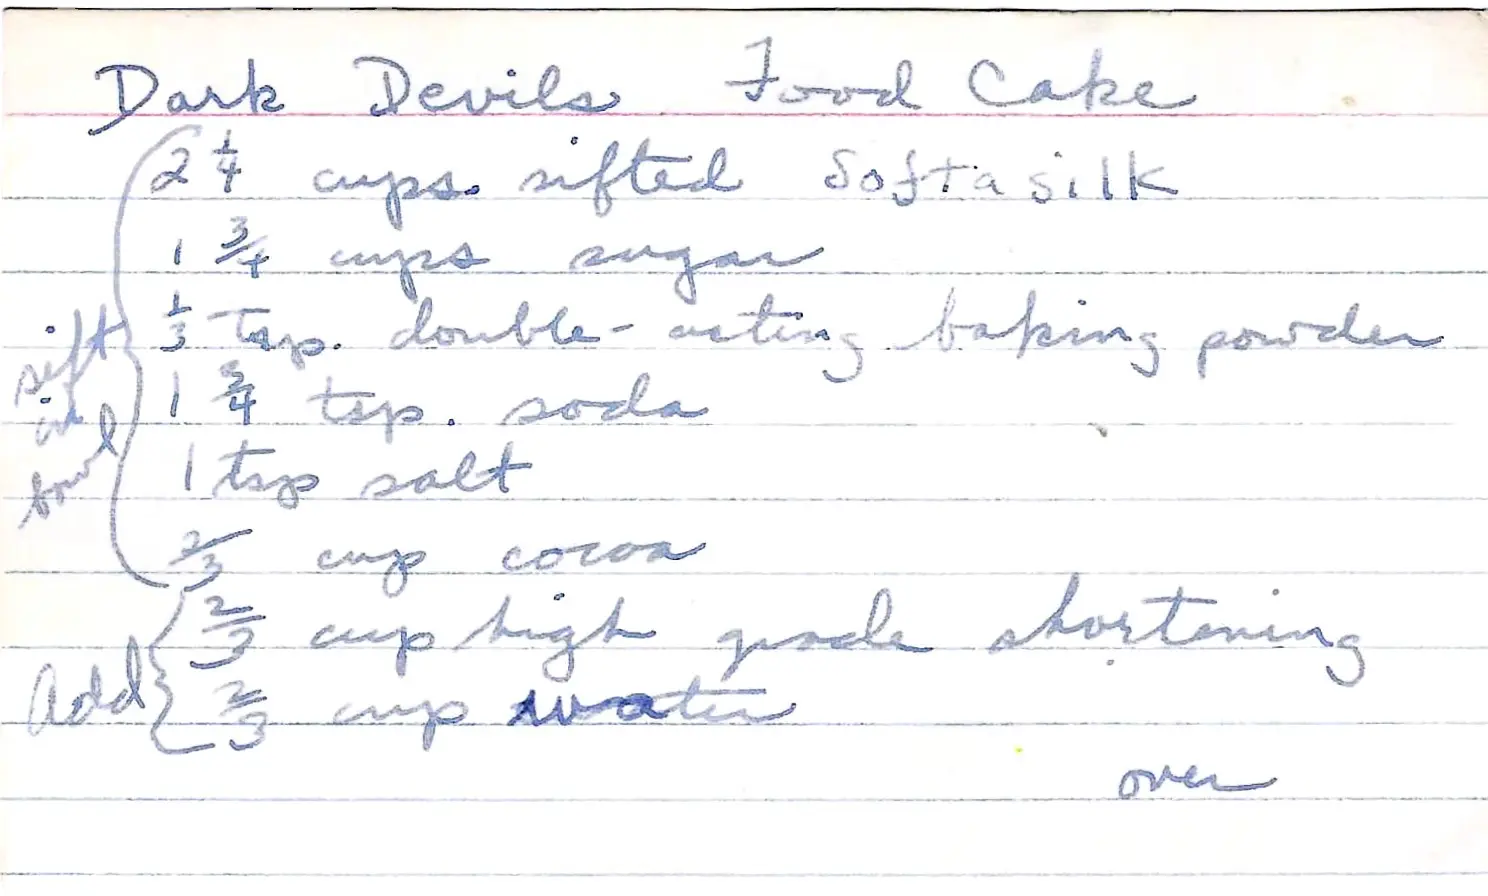 Dark Devils Food Cake
2 1/4 cups sifted Softasilk
1 3/4 cups sugar
1/3 Tsp. double-acting baking powder
1 3/4 tsp. soda
1 tsp salt
2/3 cup cocoa
sift in bowl
2/3 cup high grade shortening
2/3 cup water
Add
over